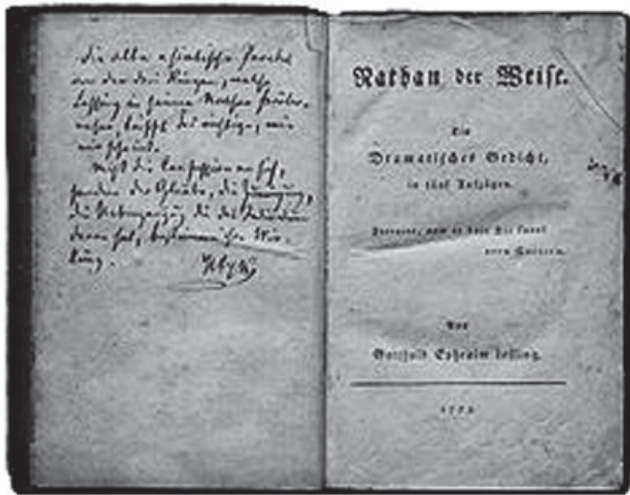 Die alte asiatische Parabel
von den drei Ringen, welche
Lessing in seinem Nathan
trifft das richtige, wie
mir scheint.
Nicht die Confession an sich,
sondern der Glaube, die
die Überzeugung, die das
daran hat, bestimmen ihre Wir-
kung.
Nathan der Weise.
Ein
Dramatisches Gedicht,
in fünf Aufzügen.
Introite, nam et heic Dii sunt!
Von
Gotthold Ephraim Lessing.
1779.